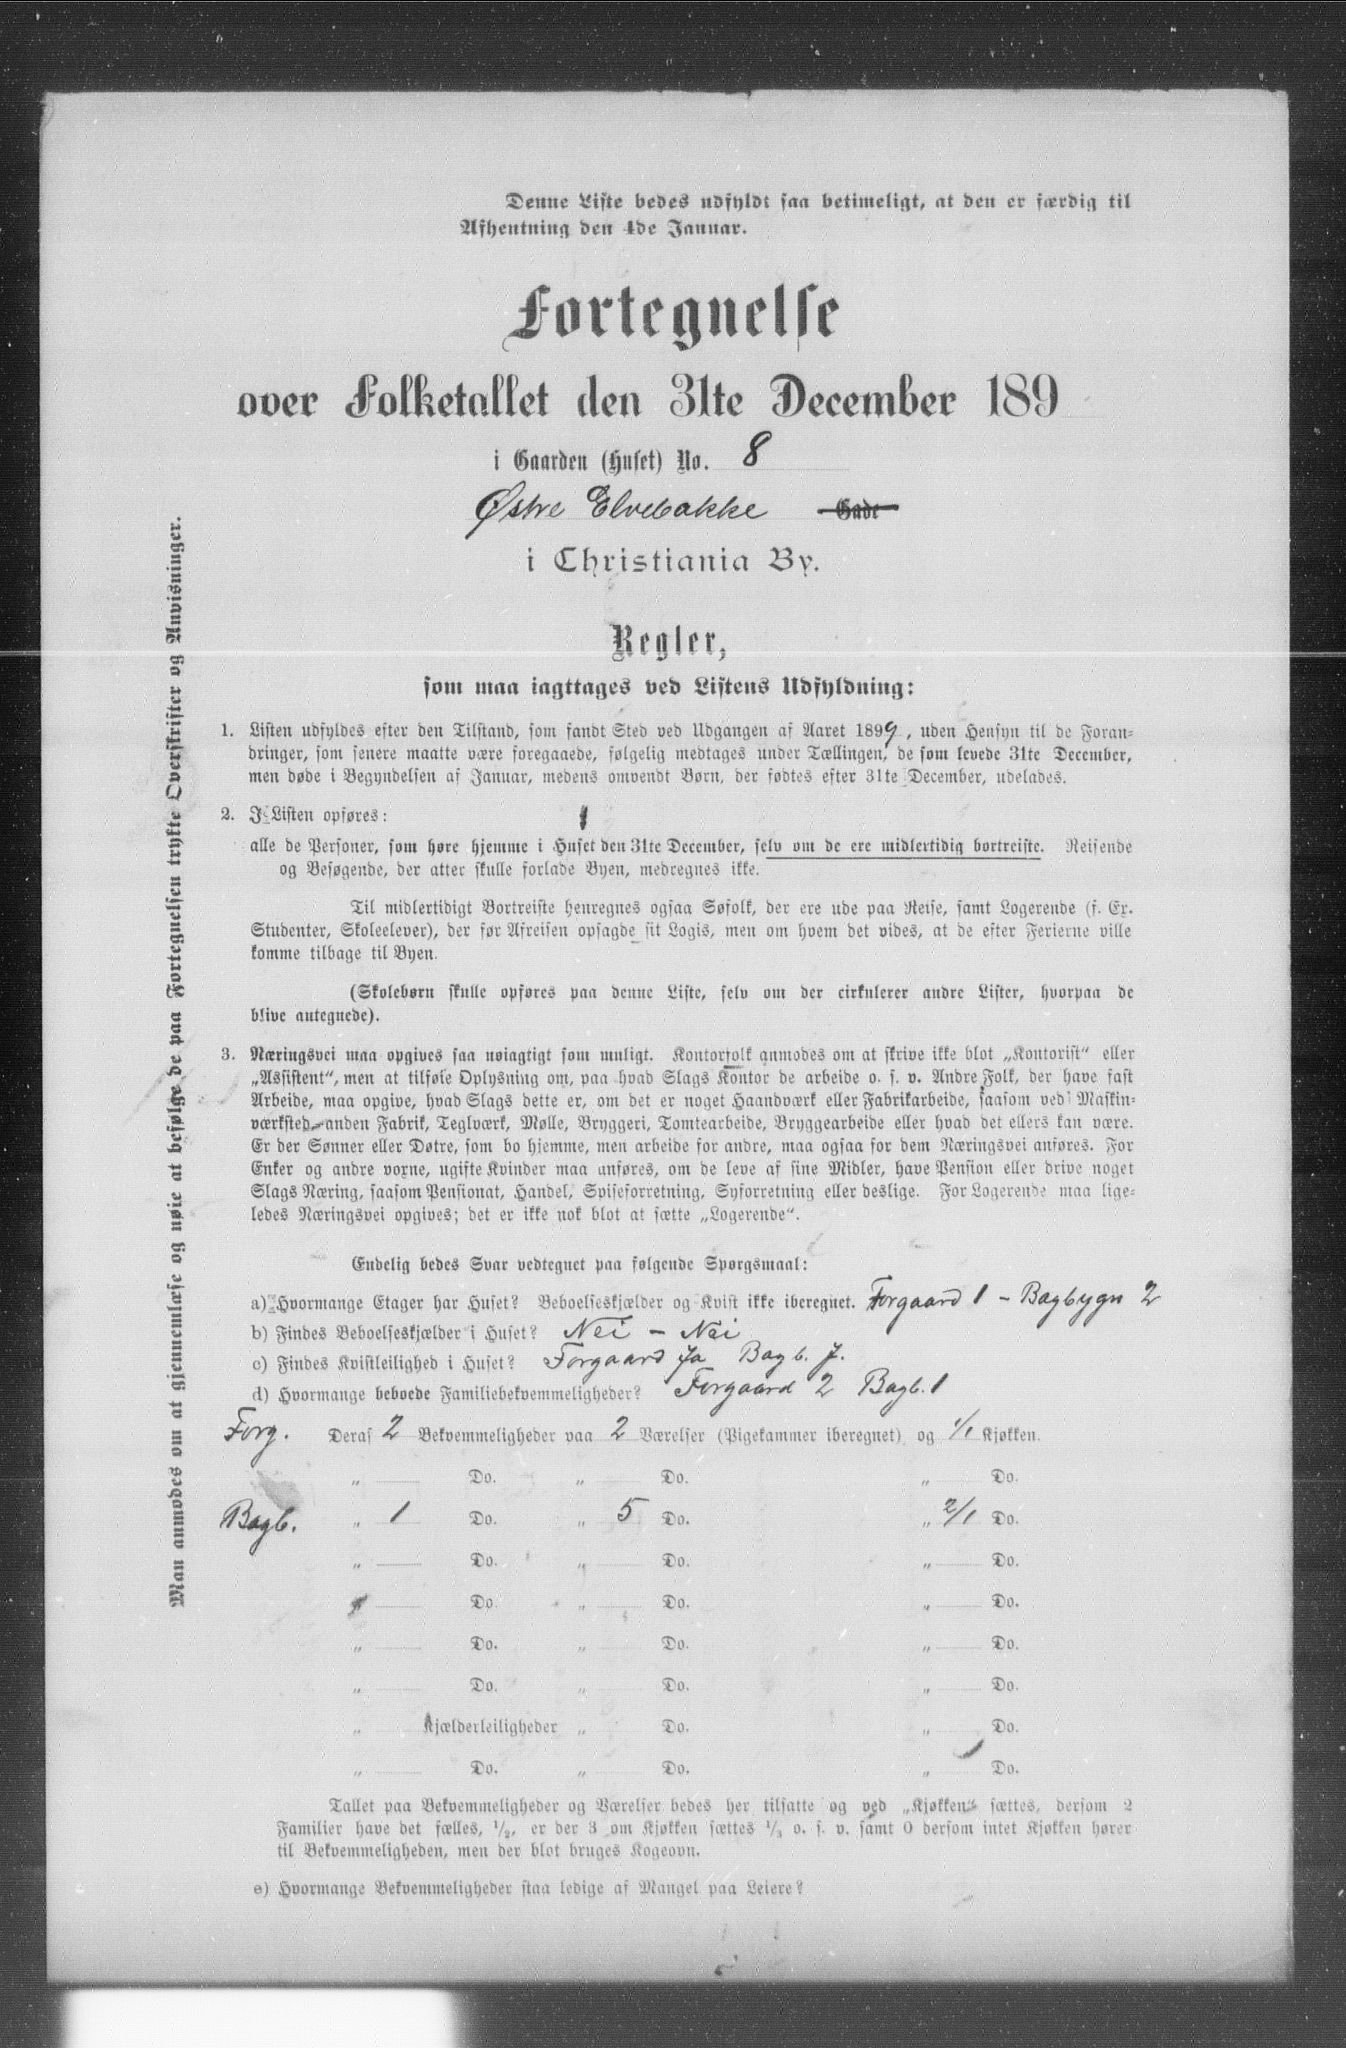 Denne Liste bedes udfyldt saa betimeligt, at den er færdig til
Afhentning den 4de Januar.
Fortegnelse
over Folketallet den 31te December 189
i Gaarden (Huset) No. 8
Østre Elvebakke Gade
i Christiania By.
Regler,
som maa iagttages ved Listens Udfyldning:
1. Listen udfyldes efter den Tilstand, som fandt Sted ved Udgangen af Aaret 1899, uden Hensyn til de Foran-
dringer, som senere maatte være foregaaede, følgelig medtages under Tællingen, de som levede 31te December,
men døde i Begyndelsen af Januar, medens omvendt Børn, der fødtes efter 31te December, udelades.
2. I Listen opføres:
alle de Personer, som høre hjemme i Huset den 31te December, selv om de ere midlertidig bortreiste. Reisende
og Besøgende, der atter skulle forlade Byen, medregnes ikke.
Til midlertidigt Bortreiste henregnes ogsaa Søfolk, der ere ude paa Reise, samt Logerende (f. Ex.
Studenter, Skoleelever), der før Afreisen opsagde sit Logis, men om hvem det vides, at de efter Ferierne ville
komme tilbage til Byen.
(Skolebørn skulle opføres paa denne Liste, selv om der cirkulerer andre Lister, hvorpaa de
blive antegnede).
3. Næringsvei maa opgives saa nøiagtigt som muligt. Kontorfolk anmodes om at skrive ikke blot „Kontorist“ eller
„Assistent“, men at tilføie Oplysning om, paa hvad Slags Kontor de arbeide o. s. v. Andre Folk, der have fast
Arbeide, maa opgive, hvad Slags dette er, om det er noget Haandværk eller Fabrikarbeide, saasom ved Maskin-
værksted anden Fabrik, Teglværk, Mølle, Bryggeri, Tomtearbeide, Bryggearbeide eller hvad det ellers kan være.
Er der Sønner eller Døtre, som bo hjemme, men arbeide for andre, maa ogsaa for dem Næringsvei anføres. For
Enker og andre voxne, ugifte Kvinder maa anføres, om de leve af sine Midler, have Pension eller drive noget
Slags Næring, saasom Pensionat, Handel, Spiseforretning, Syforretning eller deslige. For Logerende maa lige-
ledes Næringsvei opgives; det er ikke nok blot at sætte „Logerende“.
Endelig bedes Svar vedtegnet paa følgende Spørgsmaal:
a) Hvormange Etager har Huset? Beboelseskjælder og Kvist ikke iberegnet. Forgaard 1 - Bagbygn 2
b) Findes Beboelseskjælder i Huset? Nei - Nei
c) Findes Kvistleilighed i Huset? Forgaard Ja Bagb. J.
d) Hvormange beboede Familiebekvemmeligheder? Forgaard 2 Bagb. 1
Forg. Deraf 2 Bekvemmeligheder paa 2 Værelser (Pigekammer iberegnet) og 1/1 Kjøkken.
„ Do. „ Do. „ Do.
Bagb. „ 1 Do. „ 5 Do. „ 2/1 Do.
„ Do. „ Do. „ Do.
„ Do. „ Do. „ Do.
„ Do. „ Do. „ Do.
„ Do. „ Do. „ Do.
„ Kjælderleiligheder „ Do. „ Do.
„ Do. „ Do. „ Do.
Tallet paa Bekvemmeligheder og Værelser bedes her tilsatte og ved „Kjøkken“ sættes, dersom 2
Familier have det fælles, 1/2, er der 3 om Kjøkken sættes 1/3 o. s. v. samt 0 dersom intet Kjøkken hører
til Bekvemmeligheden, men der blot bruges Kogeovn.
e) Hvormange Bekvemmeligheder staa ledige af Mangel paa Leiere?
Man anmodes om at gjennemlæse og nøie at befølge de paa Fortegnelsen trykte Overskrifter og Anvisninger.